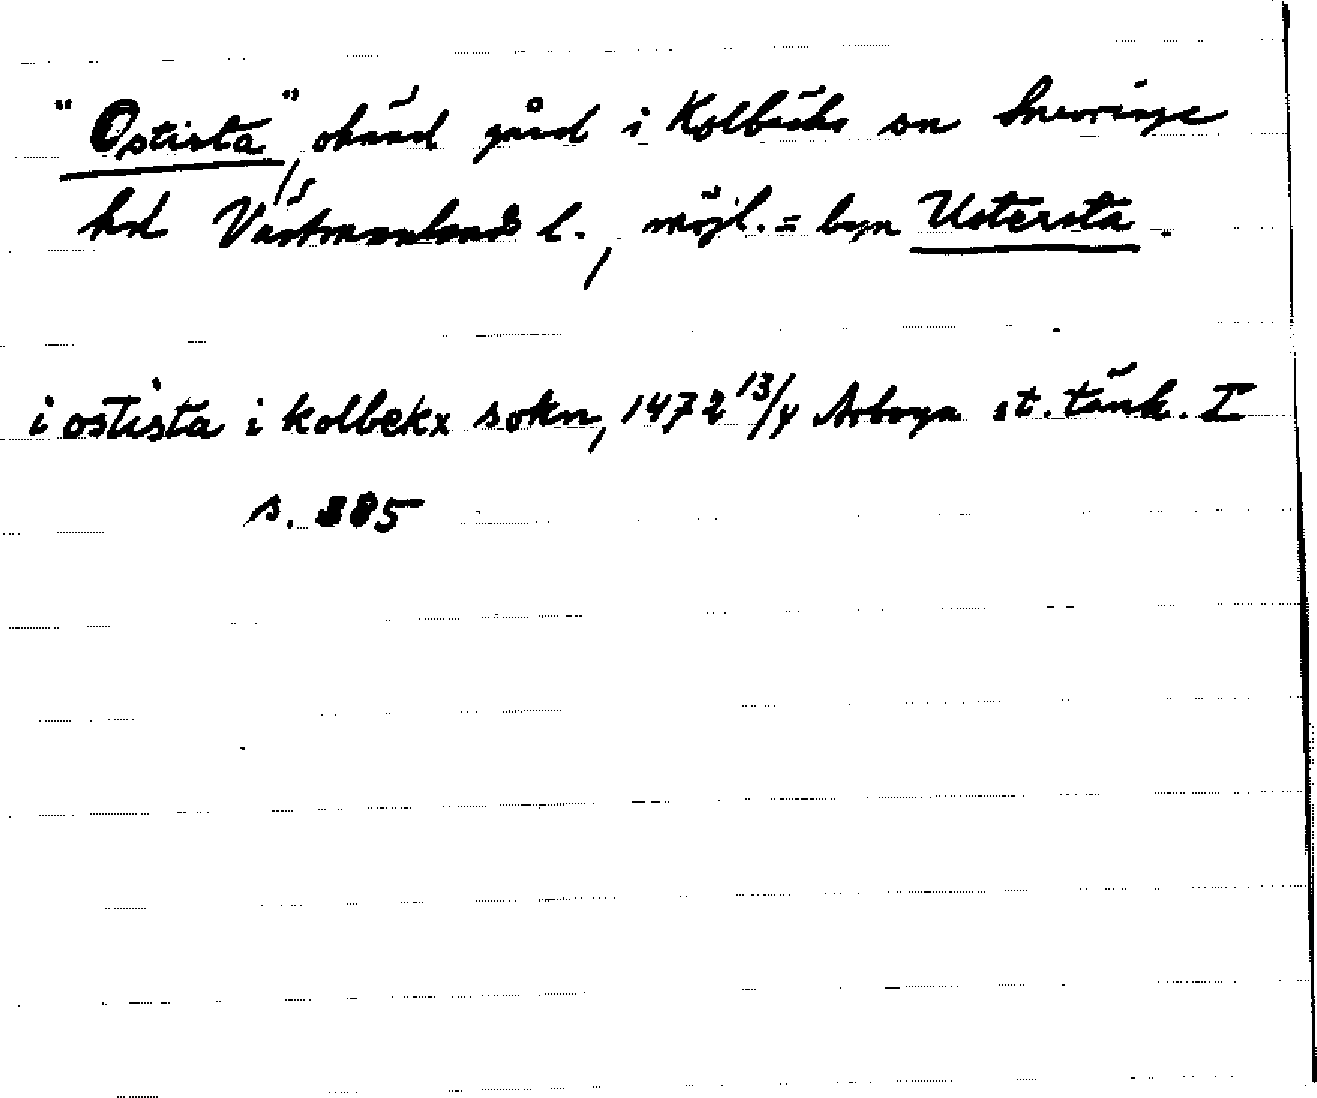 "Ostista", okänd gård i Kolbäcks sn Snevringe
hd Västmanlands l., möjl. = byn Ustersta.
i ostista i kolbekx sokn, 1472 13/4 Arboga st. tänk. I
s. 385